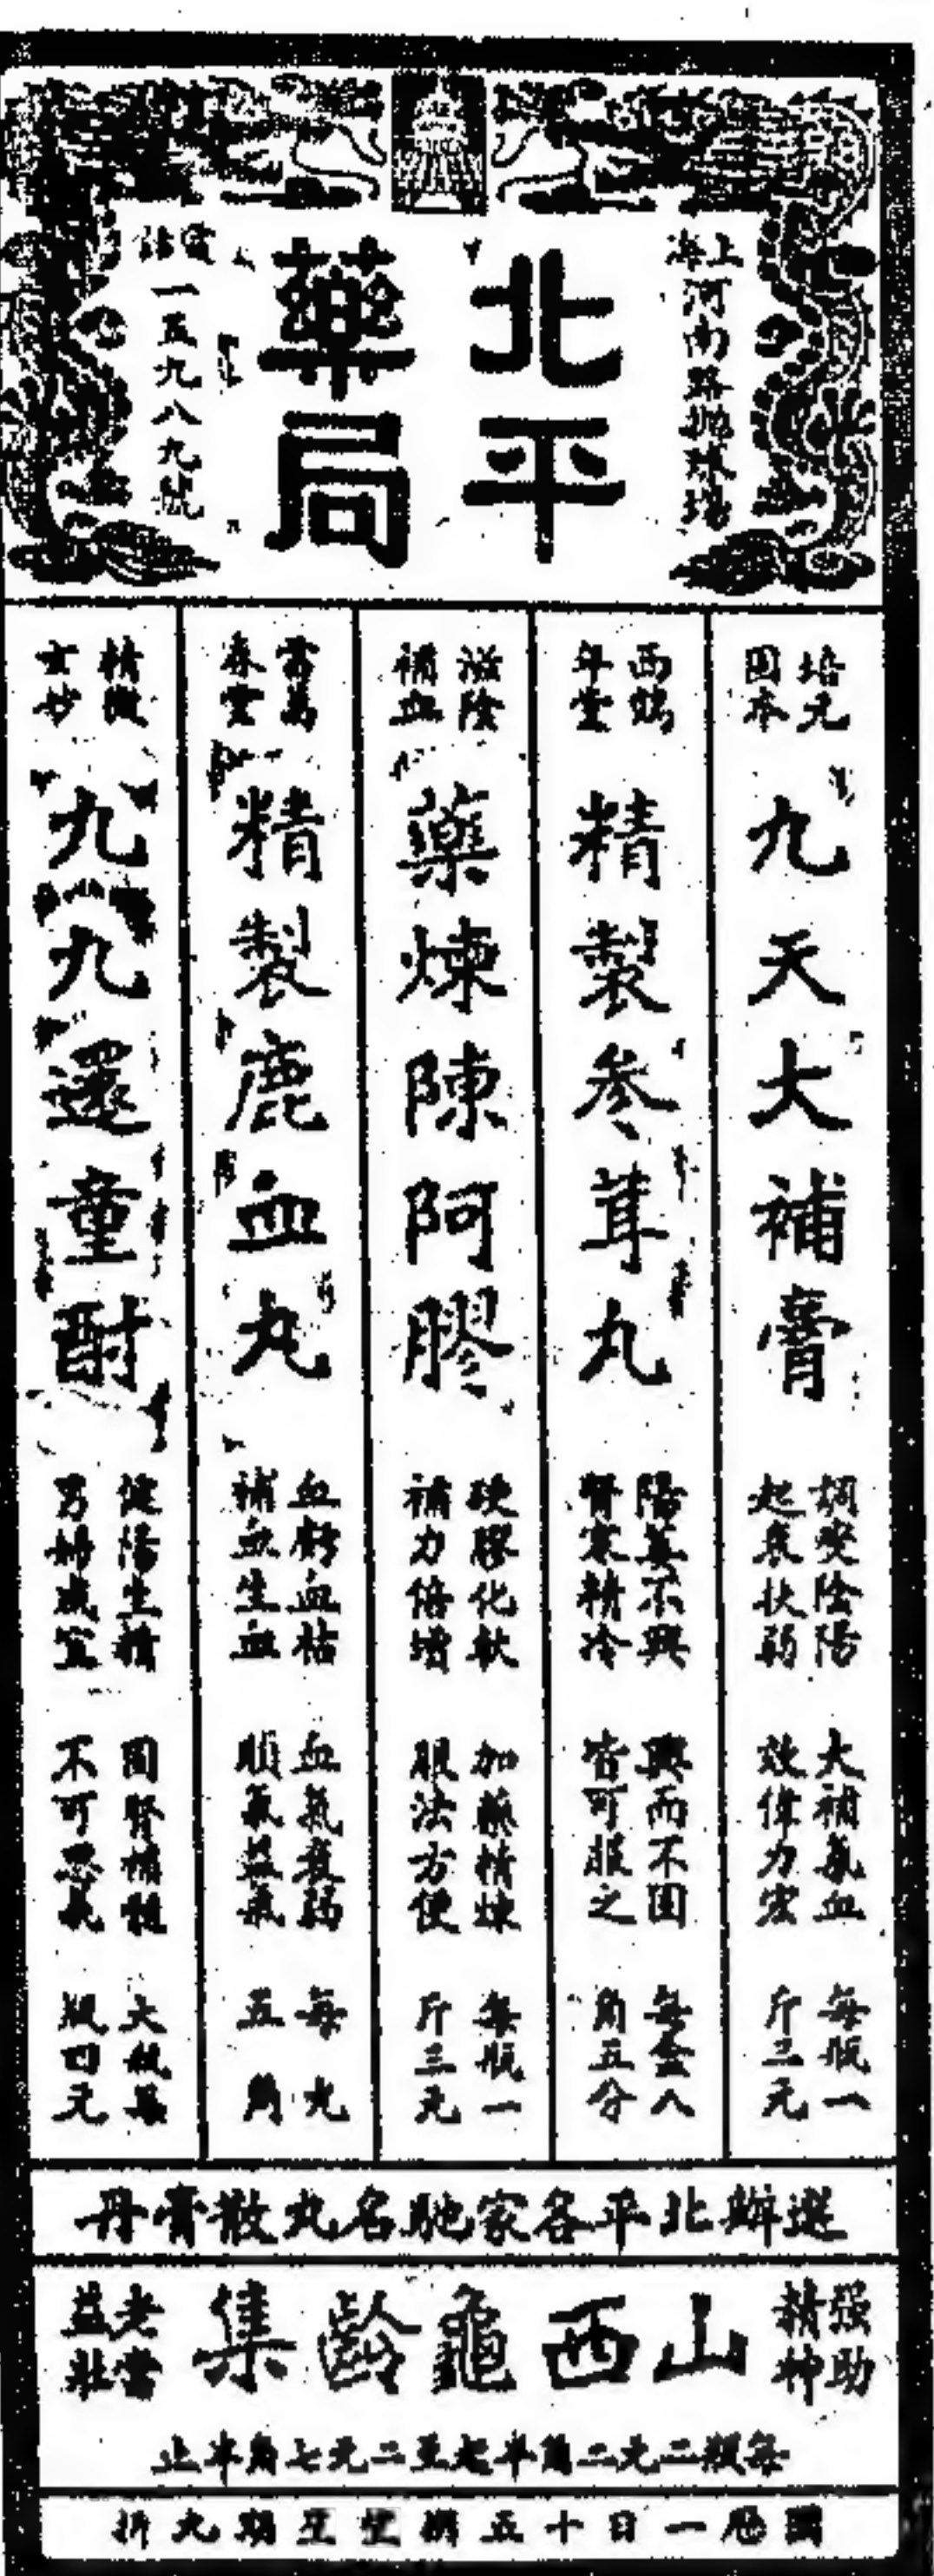 上海
河南路拋球場
北平
藥局
電話
一五九八九號
培元
固本
九天大補膏
調燮陰陽
起衰扶弱
大補氣血
效偉力宏
每瓶一
斤三元
西鶴
年堂
精製參茸丸
陽萎不興
腎寒精冷
興而不固
皆可服之
每盒八
角五分
滋陰
補血
藥煉陳阿膠
硬膠化軟
補力倍增
加藥精煉
服法方便
每瓶一
斤三元
春堂
精製鹿血丸
血虧血枯
補血生血
血氣衰弱
順氣益氣
每丸
五角
精微
玄妙
九九還童酎
健陽生精
男婦咸宜
固腎補髓
不可忽氣
大瓶每
瓶四元
選辦北平各家馳名丸散膏丹
强助
精神
山西龜齡集
老當
益壯
每瓶二元二角半起至二元七角半止
國曆一日十五朔望星期九折